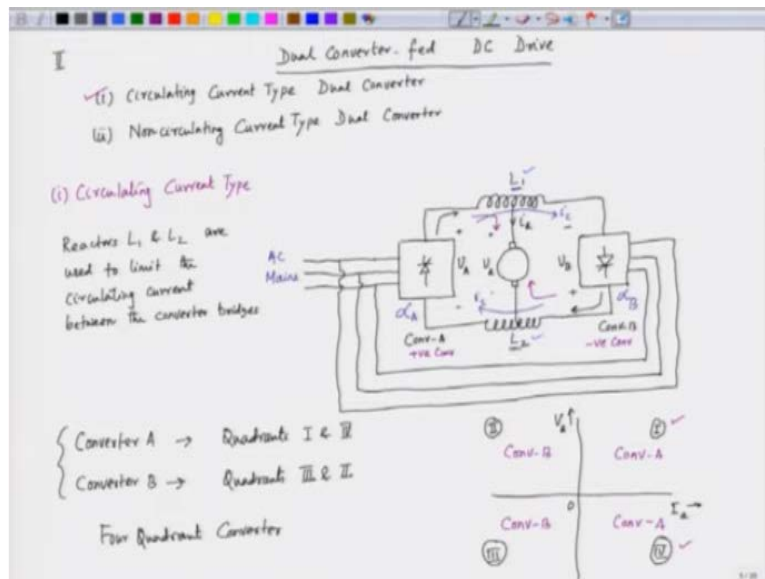 II
Dual Converter-fed DC Drive
(i) Circulating Current Type Dual Converter
(ii) Non circulating Current Type Dual Converter
(i) Circulating Current Type
Reactors L1 & L2 are
used to limit the
circulating current
between the converter bridges
AC
Mains
L1
ic
ia
+
+
-
VA
Va
VB
-
-
+
ic
αA
αB
Conv-A
+ve Conv
L2
Conv-B
-ve Conv
Converter A → Quadrants I & IV
Converter B → Quadrants III & II
Four Quadrant Converter
II
Va ↑
I
Conv-B
Conv-A
0
Ia →
Conv-B
Conv-A
III
IV